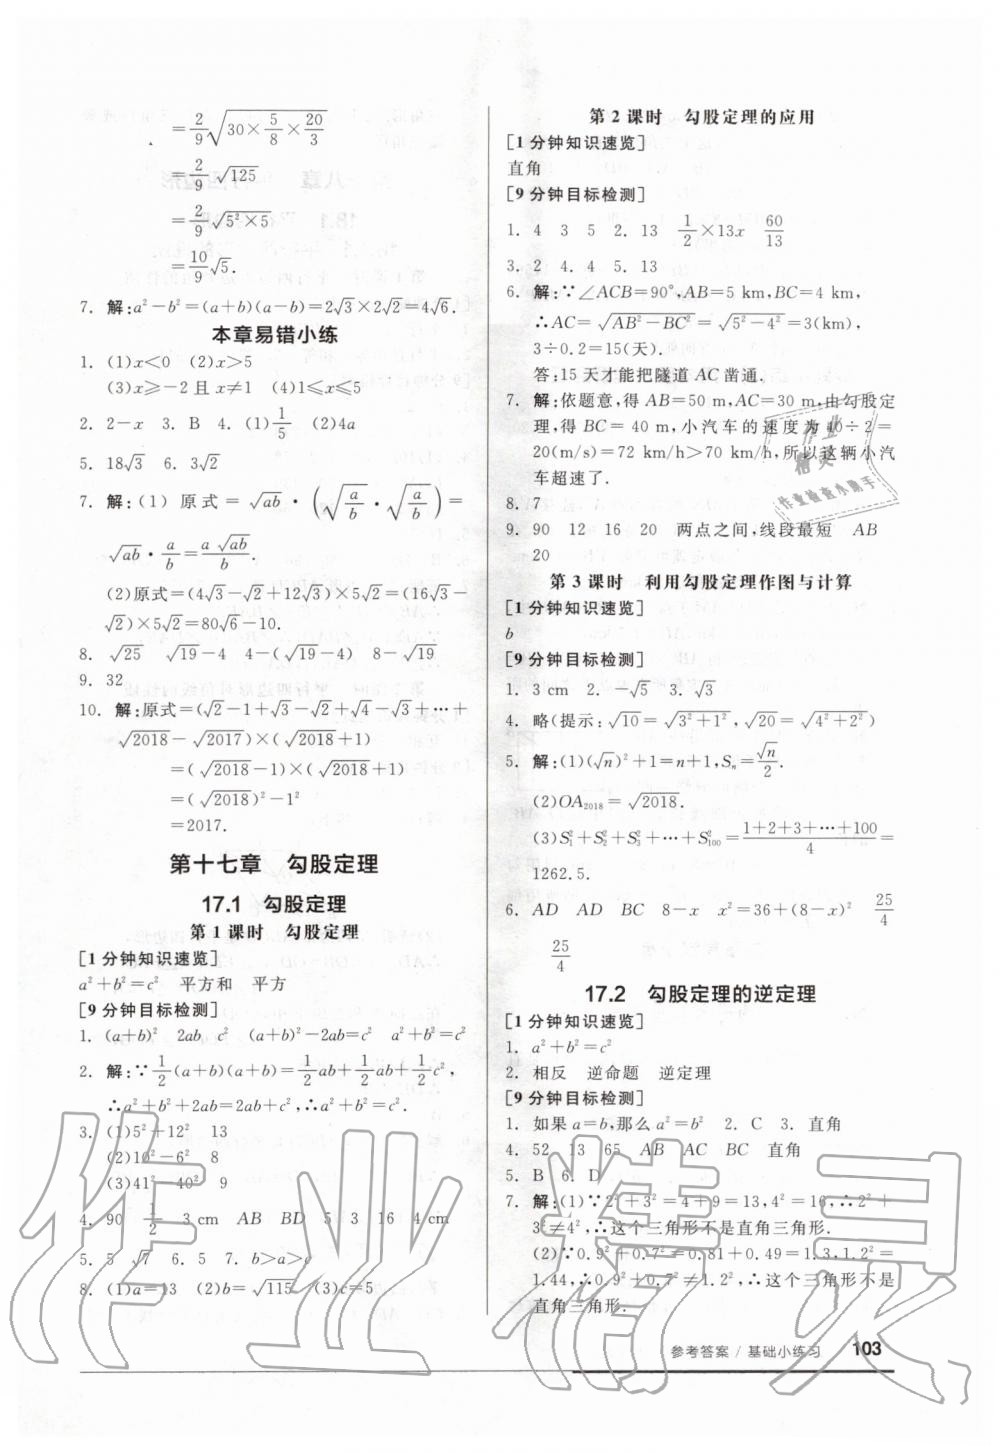 =2/9√(30×5/8×20/3)
=2/9√125
=2/9√(5²×5)
=10/9√5.
7. 解:a²-b²=(a+b)(a-b)=2√3×2√2=4√6.
本章易错小练
1. (1)x<0 (2)x>5
(3)x≥-2且x≠1 (4)1≤x≤5
2. 2-x 3. B 4. (1)1/5 (2)4a
5. 18√3 6. 3√2
7. 解:(1)原式=√ab·(√(a/b)·√(a/b))=
√ab·a/b=a√ab/b.
(2)原式=(4√3-√2+12√3)×5√2=(16√3-
√2)×5√2=80√6-10.
8. √25 √19-4 4-(√19-4) 8-√19
9. 32
10. 解:原式=(√2-1+√3-√2+√4-√3+…+
√2018-√2017)×(√2018+1)
=(√2018-1)×(√2018+1)
=(√2018)²-1²
=2017.
第十七章 勾股定理
17.1 勾股定理
第1课时 勾股定理
[1分钟知识速览]
a²+b²=c² 平方和 平方
[9分钟目标检测]
1. (a+b)² 2ab c² (a+b)²-2ab=c² a²+b²=c²
2. 解:∵1/2(a+b)(a+b)=1/2ab+1/2ab+1/2c²,
∴a²+b²+2ab=2ab+c²,∴a²+b²=c².
3. (1)5²+12² 13
(2)10²-6² 8
(3)41² 40² 9
4. 90 1/2 3 cm AB BD 5 3 16 4 cm
5. 5 √7 6. 5 7. b>a>c
8. (1)a=13 (2)b=√115 (3)c=5
第2课时 勾股定理的应用
[1分钟知识速览]
直角
[9分钟目标检测]
1. 4 3 5 2. 13 1/2×13x 60/13
3. 2 4. 4 5. 13
6. 解:∵∠ACB=90°,AB=5 km,BC=4 km,
∴AC=√(AB²-BC²)=√(5²-4²)=3(km),
3÷0.2=15(天).
答:15天才能把隧道AC凿通.
7. 解:依题意,得AB=50 m,AC=30 m,由勾股定
理,得BC=40 m,小汽车的速度为40÷2=
20(m/s)=72 km/h>70 km/h,所以这辆小汽
车超速了.
8. 7
9. 90 12 16 20 两点之间,线段最短 AB
20
第3课时 利用勾股定理作图与计算
[1分钟知识速览]
b
[9分钟目标检测]
1. 3 cm 2. -√5 3. √3
4. 略(提示:√10=√(3²+1²),√20=√(4²+2²))
5. 解:(1)(√n)²+1=n+1,Sₙ=√n/2.
(2)OA₂₀₁₈=√2018.
(3)S₁²+S₂²+S₃²+…+S₁₀₀²=(1+2+3+…+100)/4=
1262.5.
6. AD AD BC 8-x x²=36+(8-x)² 25/4
25/4
17.2 勾股定理的逆定理
[1分钟知识速览]
1. a²+b²=c²
2. 相反 逆命题 逆定理
[9分钟目标检测]
1. 如果a=b,那么a²=b² 2. C 3. 直角
4. 52 13 65 AB AC BC 直角
5. B 6. D
7. 解:(1)∵2²+3²=4+9=13,4²=16,∴2²+
3²≠4²,∴这个三角形不是直角三角形.
(2)∵0.9²+0.7²=0.81+0.49=1.3,1.2²=
1.44,∴0.9²+0.7²≠1.2²,∴这个三角形不是
直角三角形.
参考答案/基础小练习 103
作业精灵
作业
精灵
作业检查小助手